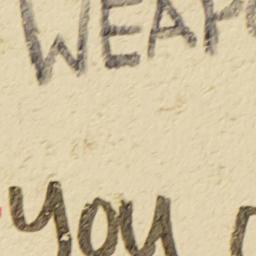 WEAP
you